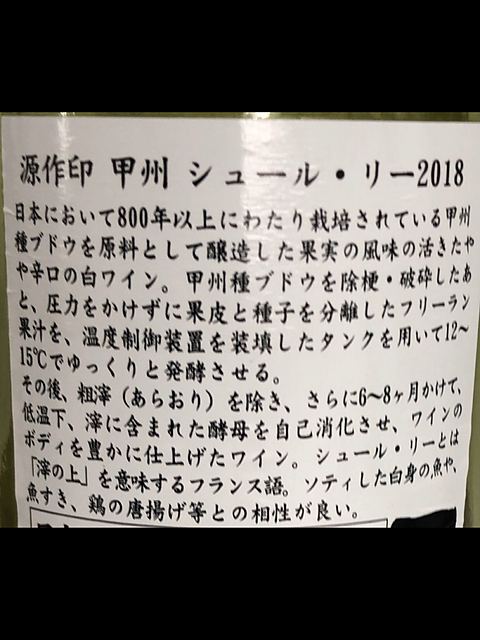 源作印 甲州 シュール・リー2018
日本において800年以上にわたり栽培されている甲州
種ブドウを原料として醸造した果実の風味の活きたや
や辛口の白ワイン。甲州種ブドウを除梗・破砕したあ
と、圧力をかけずに果皮と種子を分離したフリーラン
果汁を、温度制御装置を装填したタンクを用いて12〜
15℃でゆっくりと発酵させる。
その後、粗滓（あらおり）を除き、さらに6〜8ヶ月かけて、
低温下、滓に含まれた酵母を自己消化させ、ワインの
ボディを豊かに仕上げたワイン。シュール・リーとは
「滓の上」を意味するフランス語。ソティした白身の魚や、
魚すき、鶏の唐揚げ等との相性が良い。